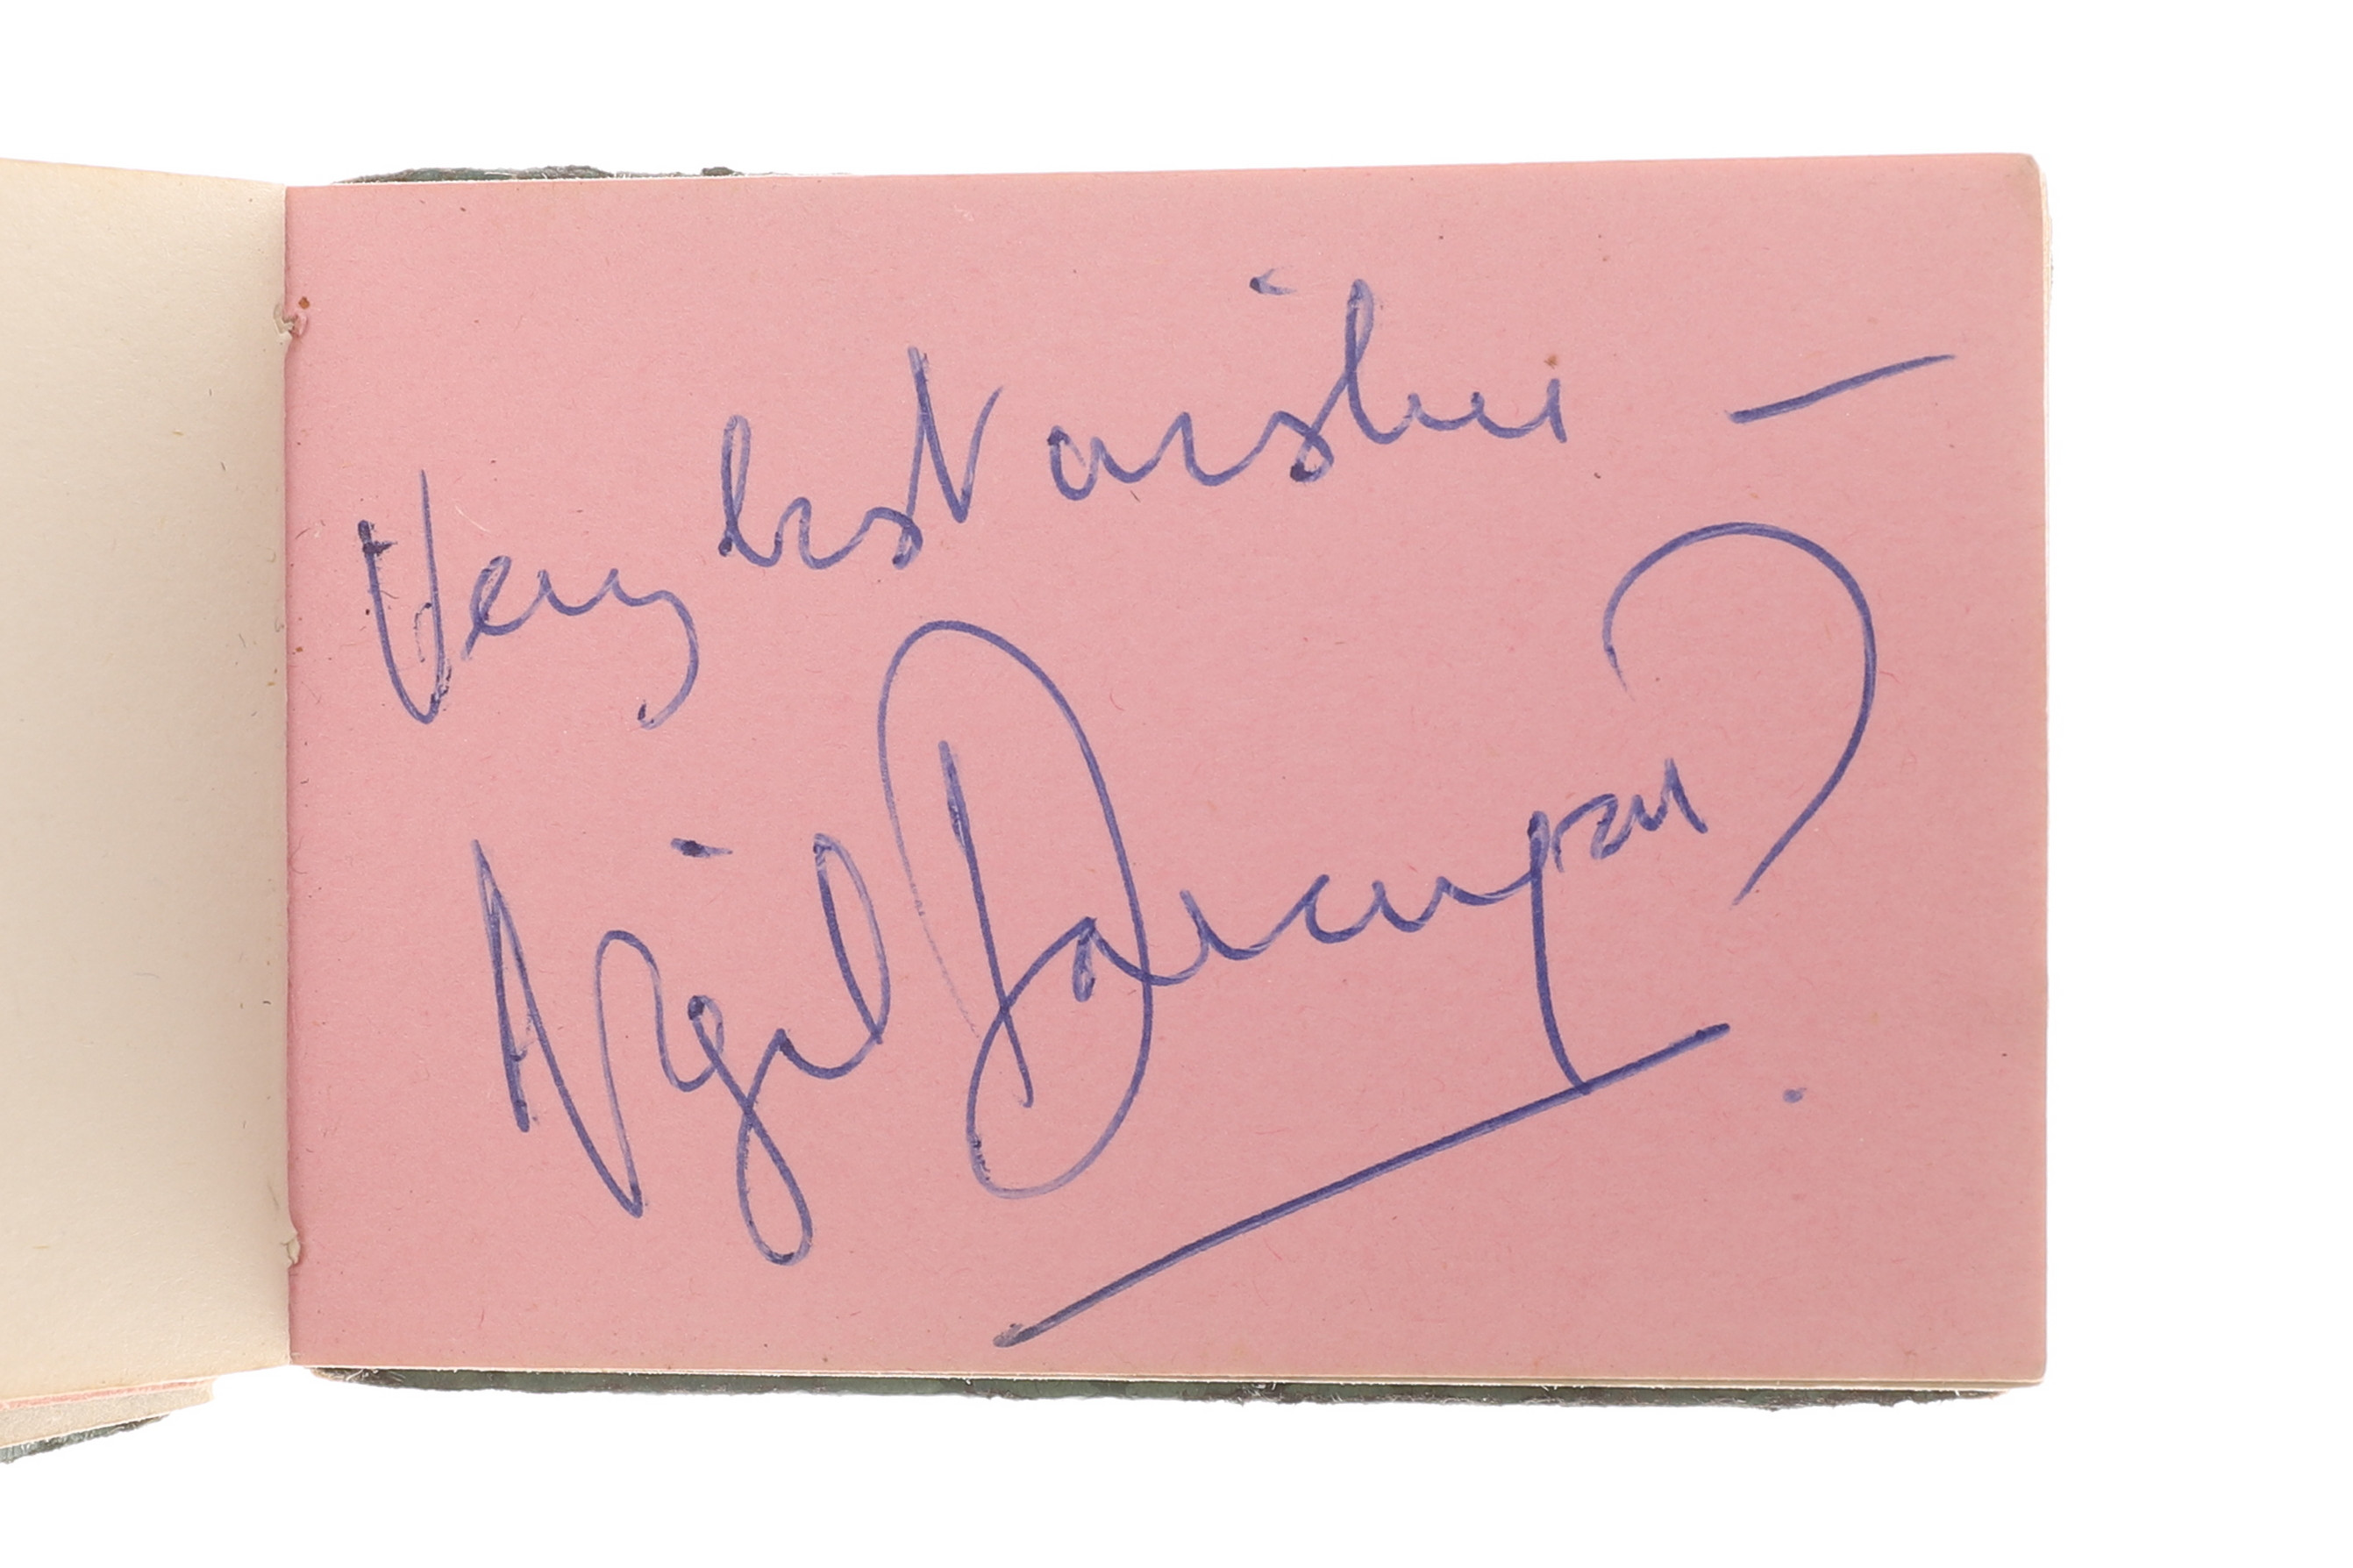 Very best wishes –
Nigel Davenport